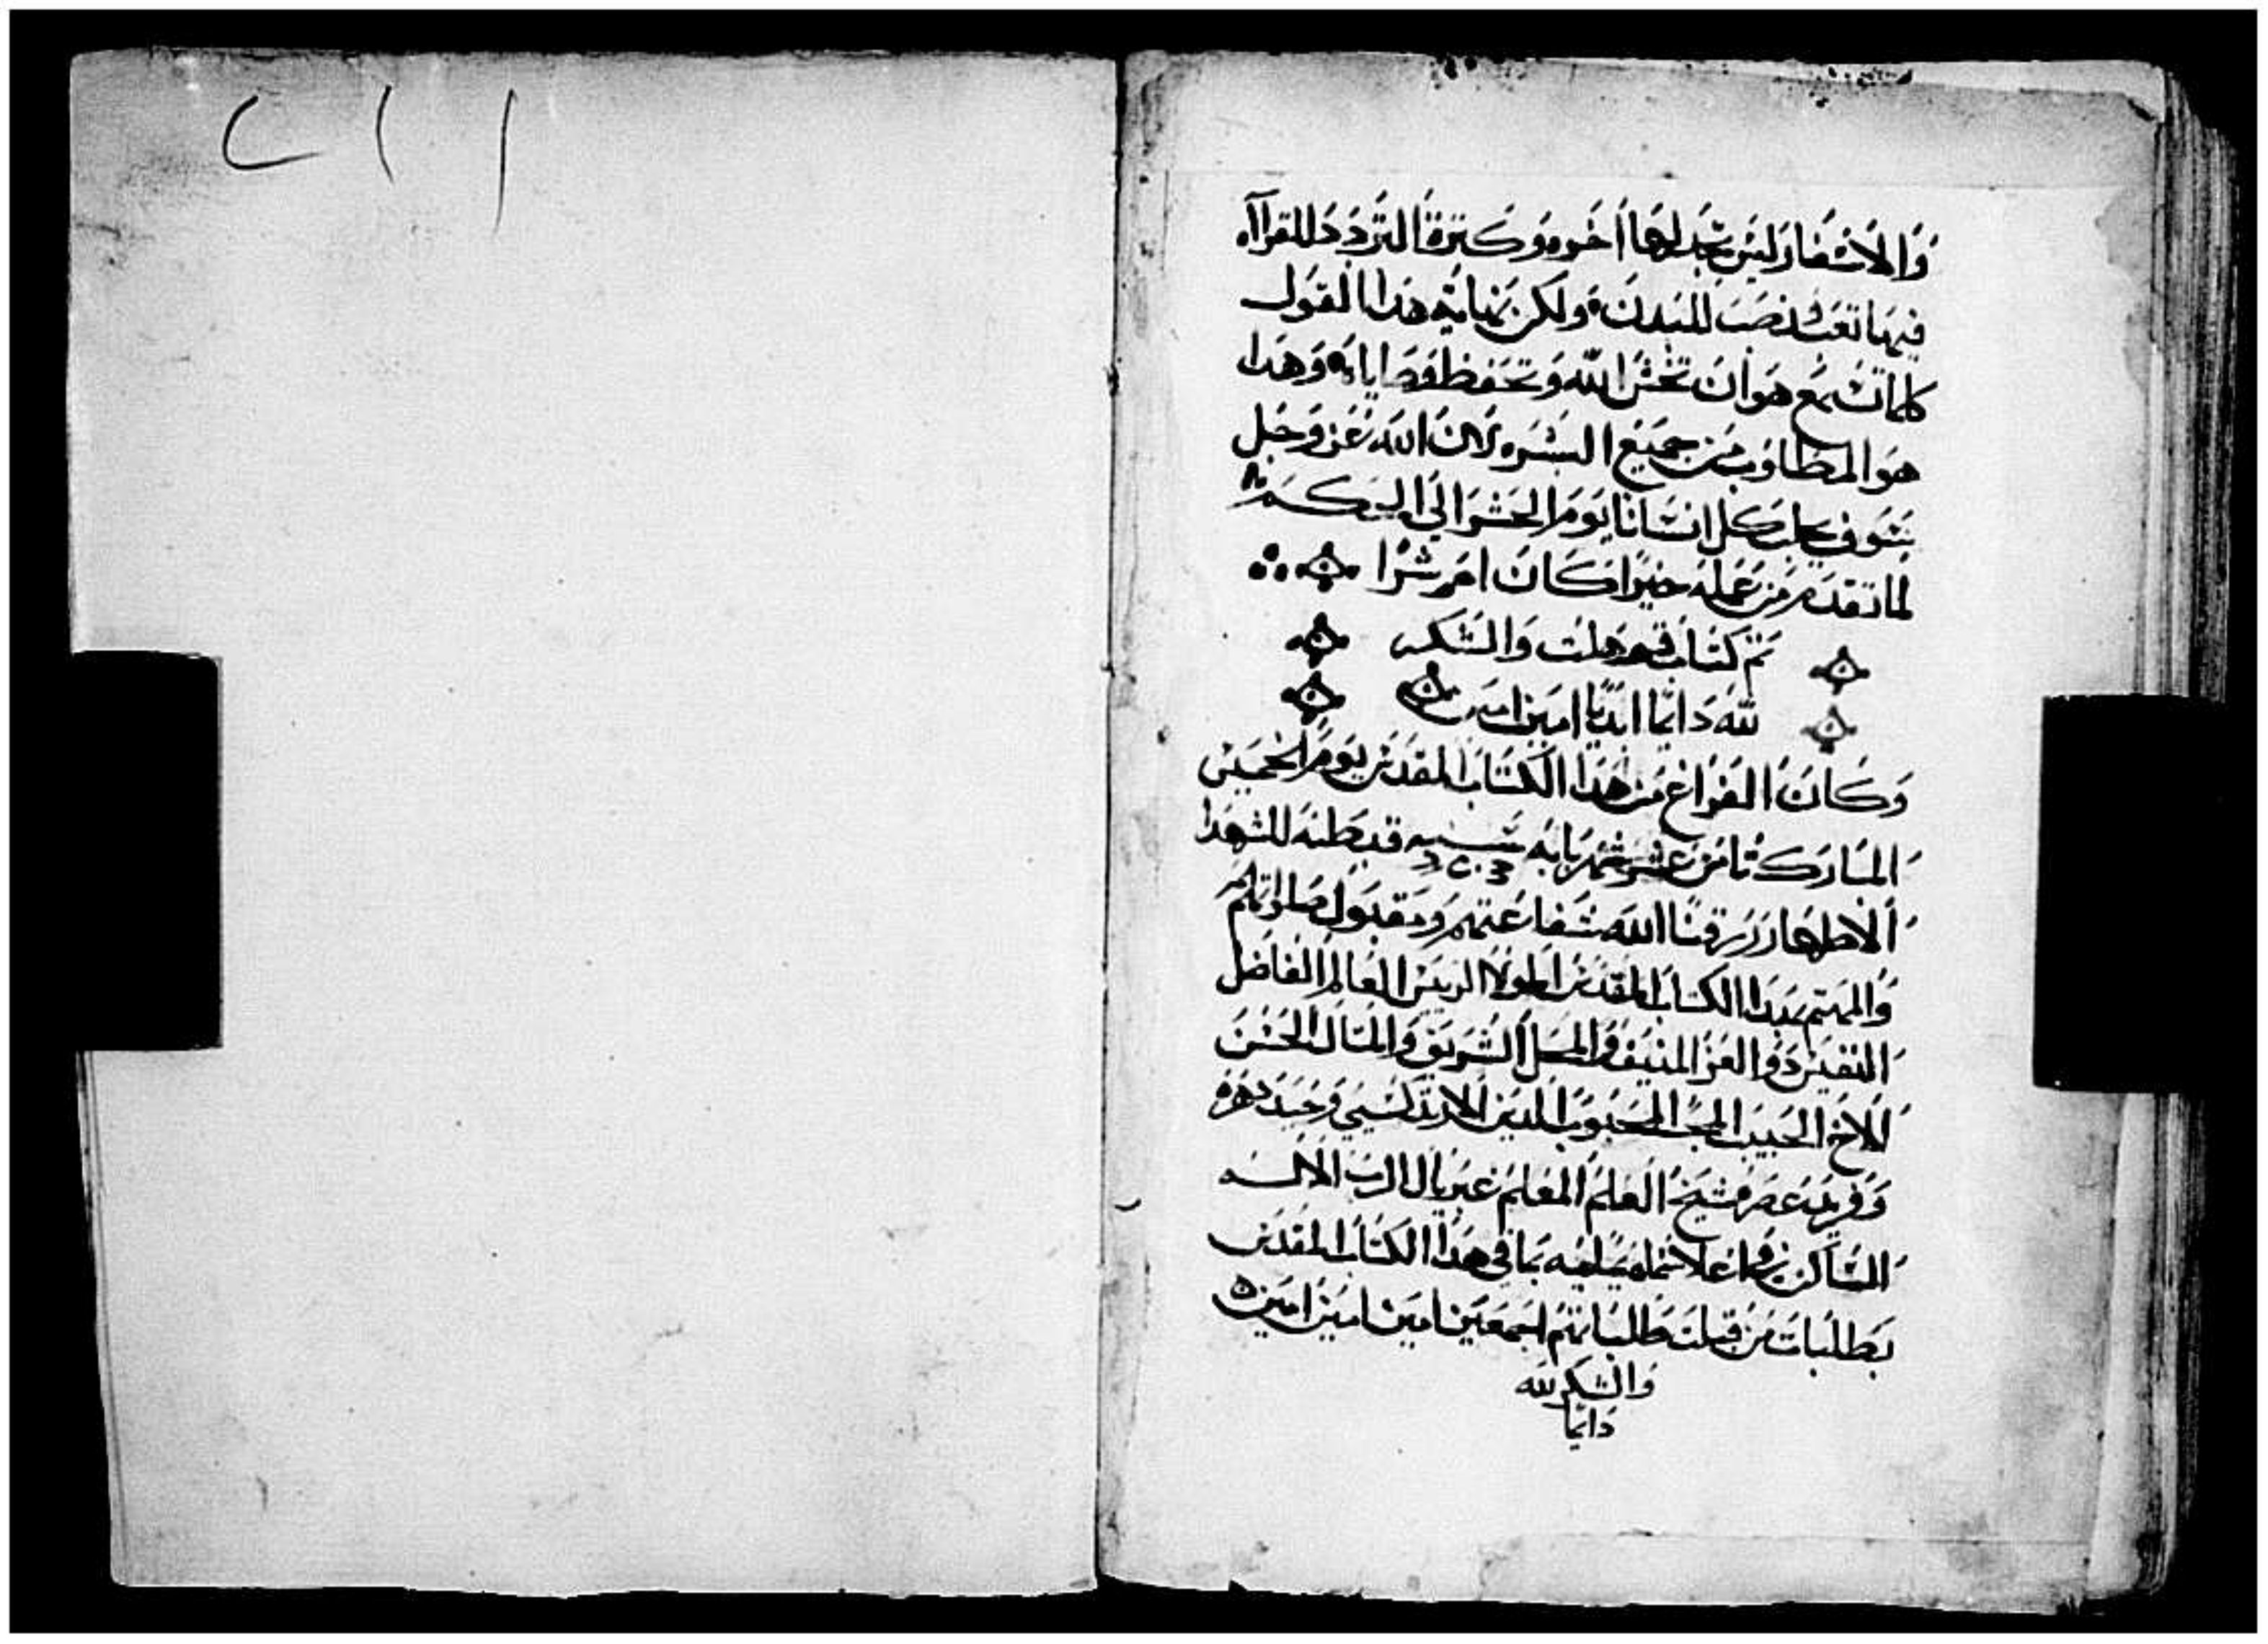 ٢١١
وَالاسْفَار ليَس تجدلهَا اخَره وَكترة التَردَد للقراآه
فيهَا تعَب ونصَب للبَدن ولَكن نهَاية هَدا القَول
كلمَا تسَمع هوَ ان تخَشَ الله وَتحَفظ وَصَايَاه وَهَدا
هوَ المطَلوَب مَن جميَع البشَر لان الله عَز وَجل
سَوف يجلب كَل انسَانا يوَم الحَشر الَي الحكَم
لما تقَدم مَن عمَله خيرًا كَان امَ شرًا
تَم كتَاب قوهلت وَالشَكر
لله دَايمًا ابَديًا امَين امَين
وَكَان الفرَاغ مَن هَدا الكتَاب المقدَس يوَم الخميَس
المبَارك تامَن عشر شهَر بَابه سَنه قبطيَه للشهَدا
الاطهَار رَزقنَا الله شفَاعتهَم وَمقبوَل صَلواتهَم
وَالمهتَم بهَدا الكتَاب المقدَس الموَلا الريَس العَالم الفَاضل
النفيَس دوَ العَز المنيَف وَالمحَل الشرَيف وَالمتَال الحَسن
الاخ الحَبيب المحَب المحَبوب الديَن الارتدكسَي وَحيَد دهَره
وَفريَد عصَره شيَخ العَلم المعَلم غبريَال الرَب الالَه
السَاكن في اعلا سماه يسَليه بمَا في هَدا الكتَاب المقدَس
بطَلبَات مَن قبلت طَلبَاتهم اجمعَين امَين امَين امَين
وَالشكَر لله
دَايمَا